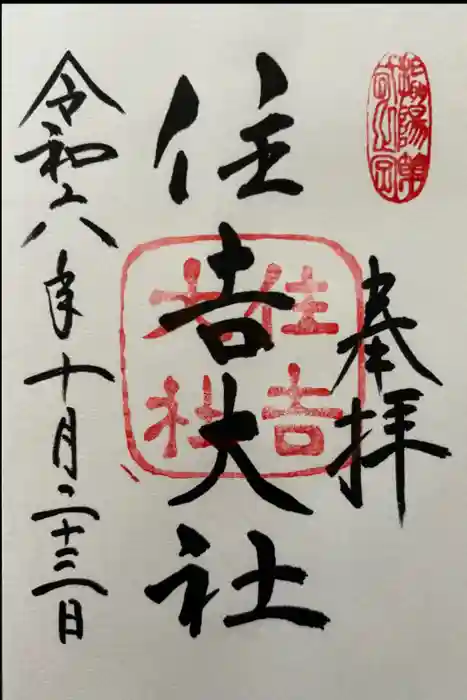 奉拝
住吉大社
住吉
大社
令和六年十月二十三日